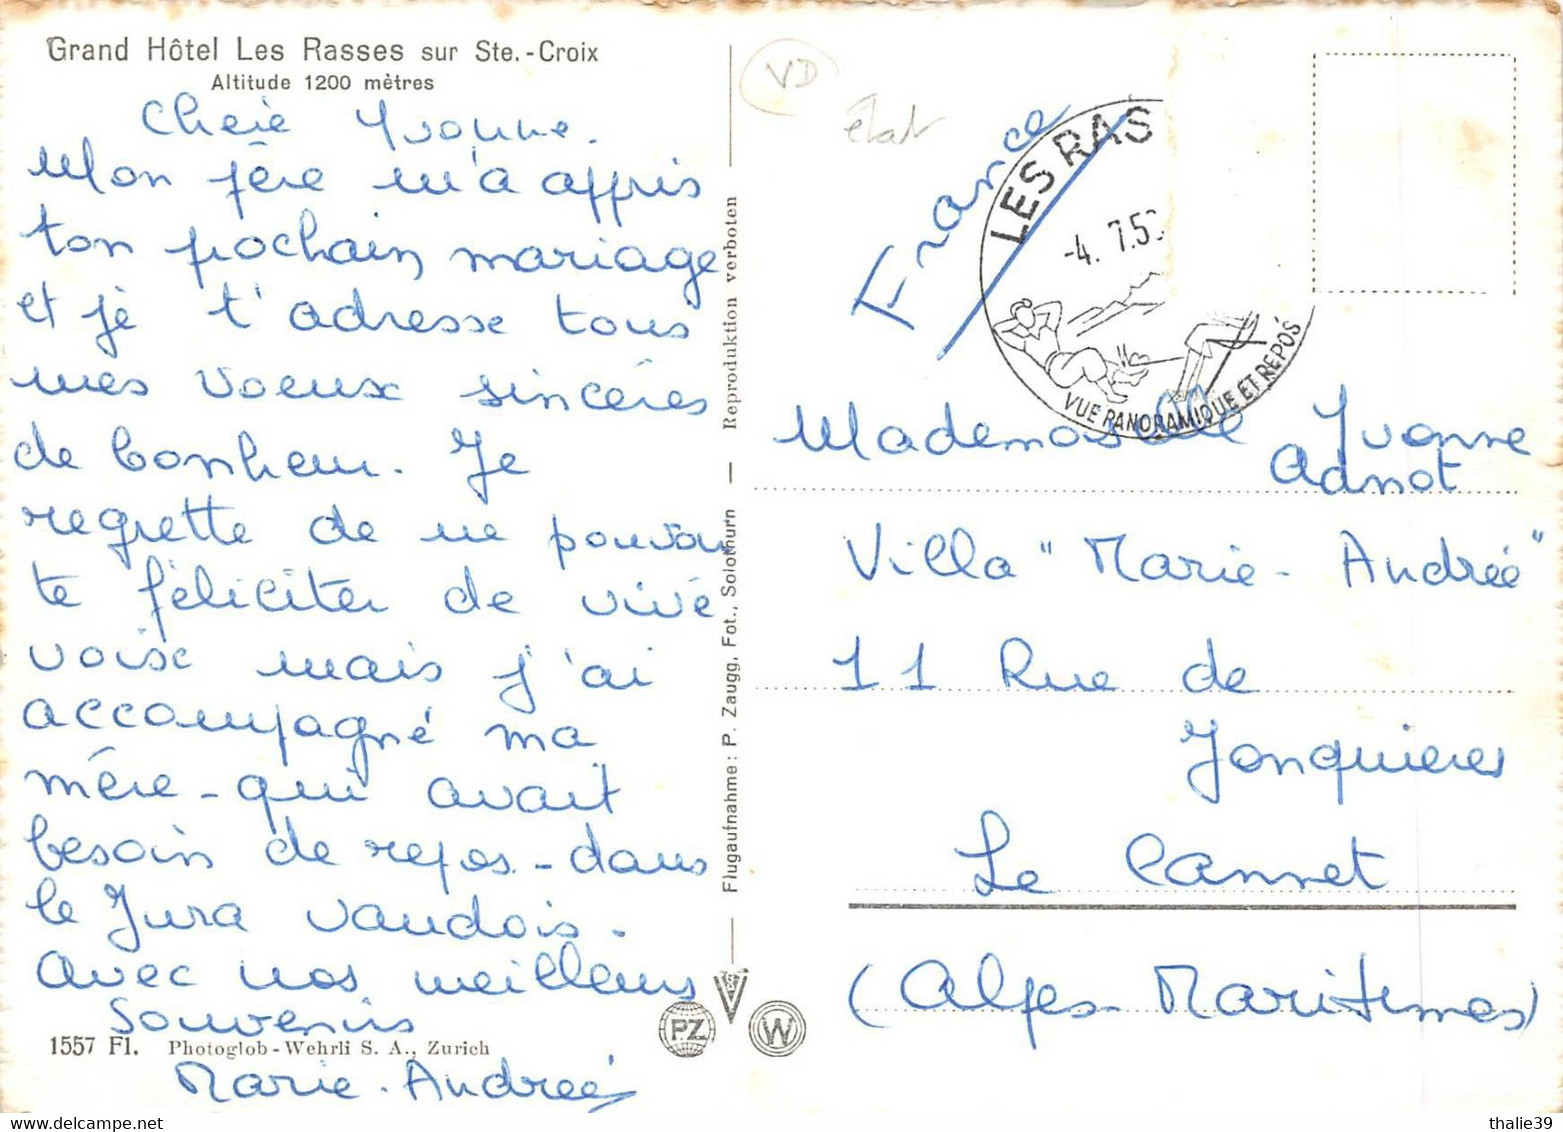 Grand Hôtel Les Rasses sur Ste.-Croix
Altitude 1200 mètres
Chère Yvonne.
Mon père m'a appris
ton prochain mariage
et je t'adresse tous
mes voeux sincères
de bonheur. Je
regrette de ne pouvoir
te féliciter de vive
voise mais j'ai
accompagné ma
mère - qui avait
besoin de repos - dans
le Jura vaudois.
Avec nos meilleurs
souvenirs
Marie-Andrée
1557 Fl. Photoglob-Wehrli S. A., Zurich
Flugaufnahme: P. Zaugg, Fot., Solothurn — Reproduktion verboten
PZ
W
VD
état
France
LES RAS
-4. 7.5
VUE PANORAMIQUE ET REPOS
Mademoiselle Yvonne
Adnot
Villa "Marie-Andrée"
11 Rue de
Jonquieres
Le Cannet
(Alpes-Maritimes)
thalie39